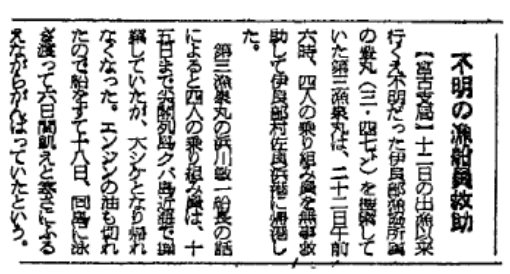 不明の漁船員救助
【宮古支局】十二日の出漁以来
行くえ不明だった伊良部漁協所属
の豊丸(三・四七㌧)を捜索して
いた第三漁泉丸は、二十二日午前
六時、四人の乗り組み員を無事救
助して伊良部村佐良浜港に帰港し
た。
第三漁泉丸の浜川敏一船長の話
によると四人の乗り組み員は、十
五日まで尖閣列島クバ島近海で操
業していたが、大シケとなり帰れ
なくなった。エンジンの油も切れ
たので船をすて十八日、同島に泳
ぎ渡って六日間飢えと寒さにふる
えながらがんばっていたという。